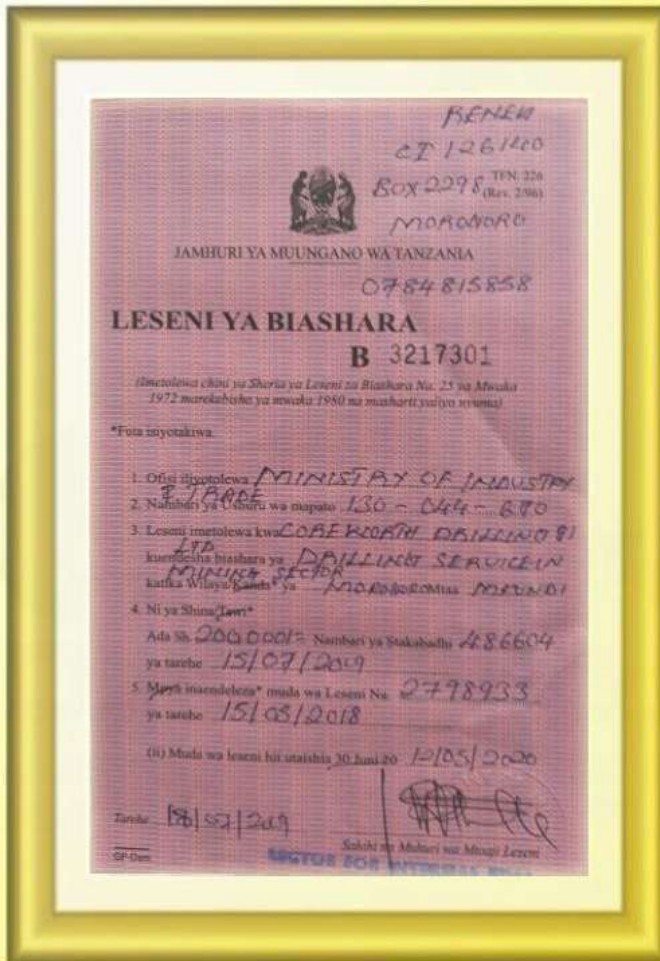 RENEW
CI 126140
BOX 2298
TFN. 226
(Rev. 2/96)
MOROGORO
JAMHURI YA MUUNGANO WA TANZANIA
0784815858
LESENI YA BIASHARA
B 3217301
(Imetolewa chini ya Sheria ya Leseni za Biashara Na. 25 ya Mwaka
1972 marekebisho ya mwaka 1980 na masharti yaliyo nyuma)
*Futa isiyotakiwa
1. Ofisi iliyotolewa MINISTRY OF INDUSTRY
& TRADE
2. Nambari ya Ushuru wa mapato 130-044-
3. Leseni imetolewa kwa COREWORTH DRILLING
LTD
kuendesha biashara ya DRILLING SERVICE IN
MINING SECTOR
katika Wilaya/Kanda* ya MOROGORO Mtaa
4. Ni ya Shina/Tawi*
Ada Sh. 200,000/= Nambari ya Stakabadhi 486604
ya tarehe 15/07/2019
5. Mpya inaendeleza* muda wa Leseni Na. 2798933
ya tarehe 15/05/2018
(ii) Muda wa leseni hii utaishia 30 Juni 20 12/05/2020
Tarehe 18/07/2019
Sahihi na Muhuri wa Mtoaji Leseni
GP-Dsm
SECTOR FOR INTERNAL